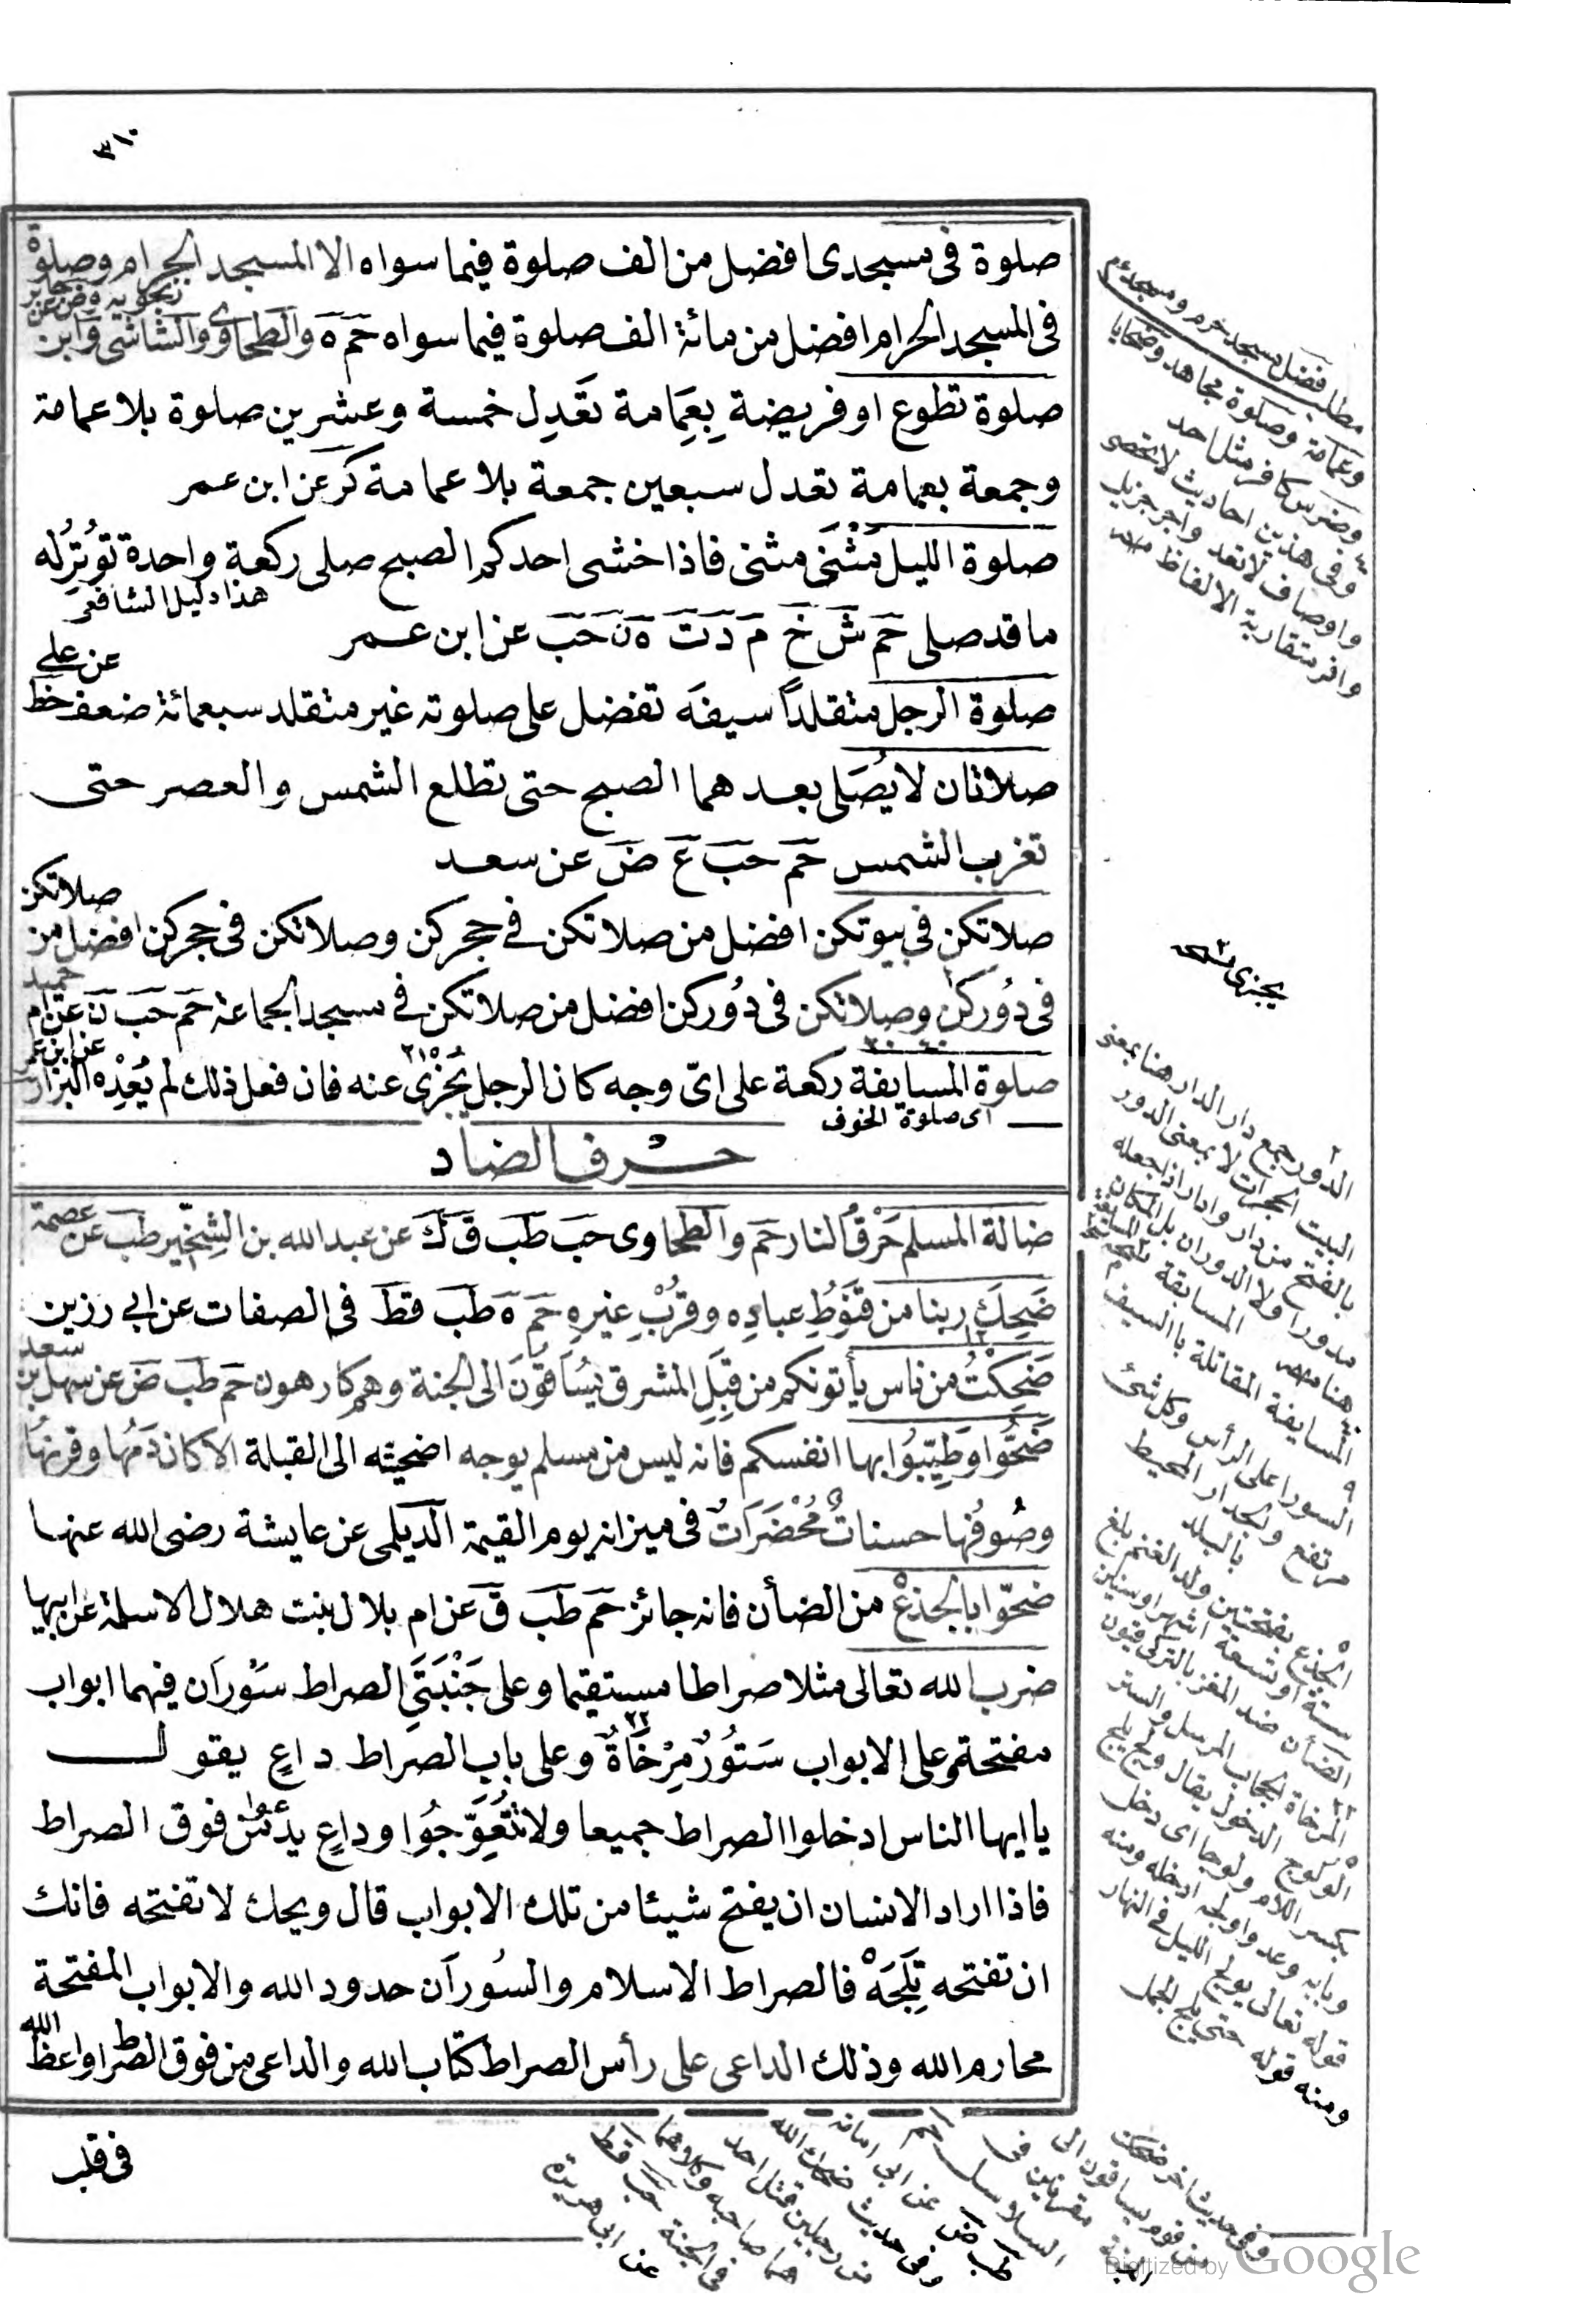 ٣١٠
صلوة فى مسجدى افضل من الف صلوة فيما سواه الا المسجد الحرام وصلوة
فى المسجد الحرام افضل من مائة الف صلوة فيما سواه حَم هَ والطحاوى والشاشى وابن
زنجويه وض عن جابر
صلوة تطوع او فريضة بِعِمَامة تَعدِل خمسة وعشرين صلوة بلا عمامة
وجمعة بعمامة تعدل سبعين جمعة بلا عمامة كَر عن ابن عمر
صلوة الليل مَثْنَى مثنى فاذا خشى احدكم الصبح صلى ركعة واحدة تُوتِرُ له
هذا دليل الشافعى
ما قد صلى حَم شَ خَ مَ دَ تَ هَ نَ حَبَ عن ابن عمر
صلوة الرجل متقلداً سيفَه تفضل على صلوته غير متقلد سبعمائة ضعف خَط
عن على
صلاتان لا يُصَلى بعدهما الصبح حتى تطلع الشمس والعصر حتى
تغرب الشمس حَم حَب عَ ضَ عن سعد
صلاتكن فى بيوتكن افضل من صلاتكن فى حجركن وصلاتكن فى حجركن افضل من
صلاتكن
فى دُوركن وصلاتكن فى دُوركن افضل من صلاتكن فى مسجد الجماعة حَم حَب نَ عن ام
حميد
صلوة المسايفة ركعة على اىّ وجه كان الرجل يُجْزِى عنه فان فعل ذلك لم يُعِدْه البزار
عن ابن عمر
اى صلوة الخوف
حرف الضاد
ضالة المسلم حَرْقُ النار حَم والطحاوى حَب طَب قَ كَ عن عبدالله بن الشِخِّير طَب عن
عصمة
ضَحِكَ ربنا من قنُوطِ عبادِه وقُرْبِ غيرِهِ حَم هَ طَب قَط فى الصفات عن ابى رزين
ضَحِكْتُ من ناس يأتونكم من قِبَلِ المشرق يُسَاقُونَ الى الجنة وهم كارهون حَم طَب ضَ عن سهل بن
سعد
ضَحُّوا وَطَيِّبُوا بها انفسكم فانه ليس من مسلم يوجه اضحيته الى القبلة الا كان دَمُها وقرنُها
وصُوفُها حسناتٌ مُحْضَرَاتٌ فى ميزانه يوم القيمة الديلمى عن عايشة رضى الله عنها
ضحّوا بالجذع من الضأن فانه جائز حَم طَب قَ عن ام بلال بنت هلال الاسلمة عن ابيها
ضرب الله تعالى مثلا صراطا مستقيما وعلى جَنْبَتَىِ الصراط سُوْرَان فيهما ابواب
مفتحة وعلى الابواب سَتُورٌ مِرْخَاةٌ وعلى باب الصراط داعٍ يقول
يا ايها الناس ادخلوا الصراط جميعا ولا تَتَعَوَّجُوا وداعٍ يدعو من فوق الصراط
فاذا اراد الانسان ان يفتح شيئا من تلك الابواب قال ويحك لا تفتحه فانك
ان تفتحه تَلِجَهْ فالصراط الاسلام والسُوران حدود الله والابواب المفتحة
محارم الله وذلك الداعى على رأس الصراط كتاب الله والداعى من فوق الصراط واعظ
الله
فى قلب
مطلب فضل مسجد حرم ومسجدهم
وعمامة وصلوة مجاهد وضحايا
وضرس كافر مثل احد
وفى هذين احاديث لا تحصى
واوصاف لا تعد واجر جزيل
وافر متقاربة الالفاظ
يجزى
الدور جمع دار الدار هنا بمعنى
البيت الحجرات لا بمعنى الدور
بالفتح من دار وادار اذا جعله
مدورا ولا الدوران بل المكان
المسايفة المقاتلة بالسيف
السور اعلى الرأس وكل شئ
مرتفع والجدار المحيط
بالبلد
الجذع بفتحتين ولد الغنم بلغ
سنة او تسعة اشهر او سنين
الضأن ضد المعز بالتركى قيون
المرخاة الحجاب المرسل والستر
الولوج الدخول يقال ولج يلج
بكسر اللام ولوجا اى دخل
وبابه وعد واولجه ادخله ومنه
قوله تعالى يولج الليل فى النهار
ومنه قوله حتى يلج الجمل
وفى حديث اخر ضحكت
من قوم يساقون الى
الجنة مقرنين فى
السلاسل
طَب ض عن ابى امامة
وفى حديث ضحك الله
من رجلين قتل احدهما
صاحبه وكلاهما
فى الجنة
عن ابى هريرة
Digitized by Google